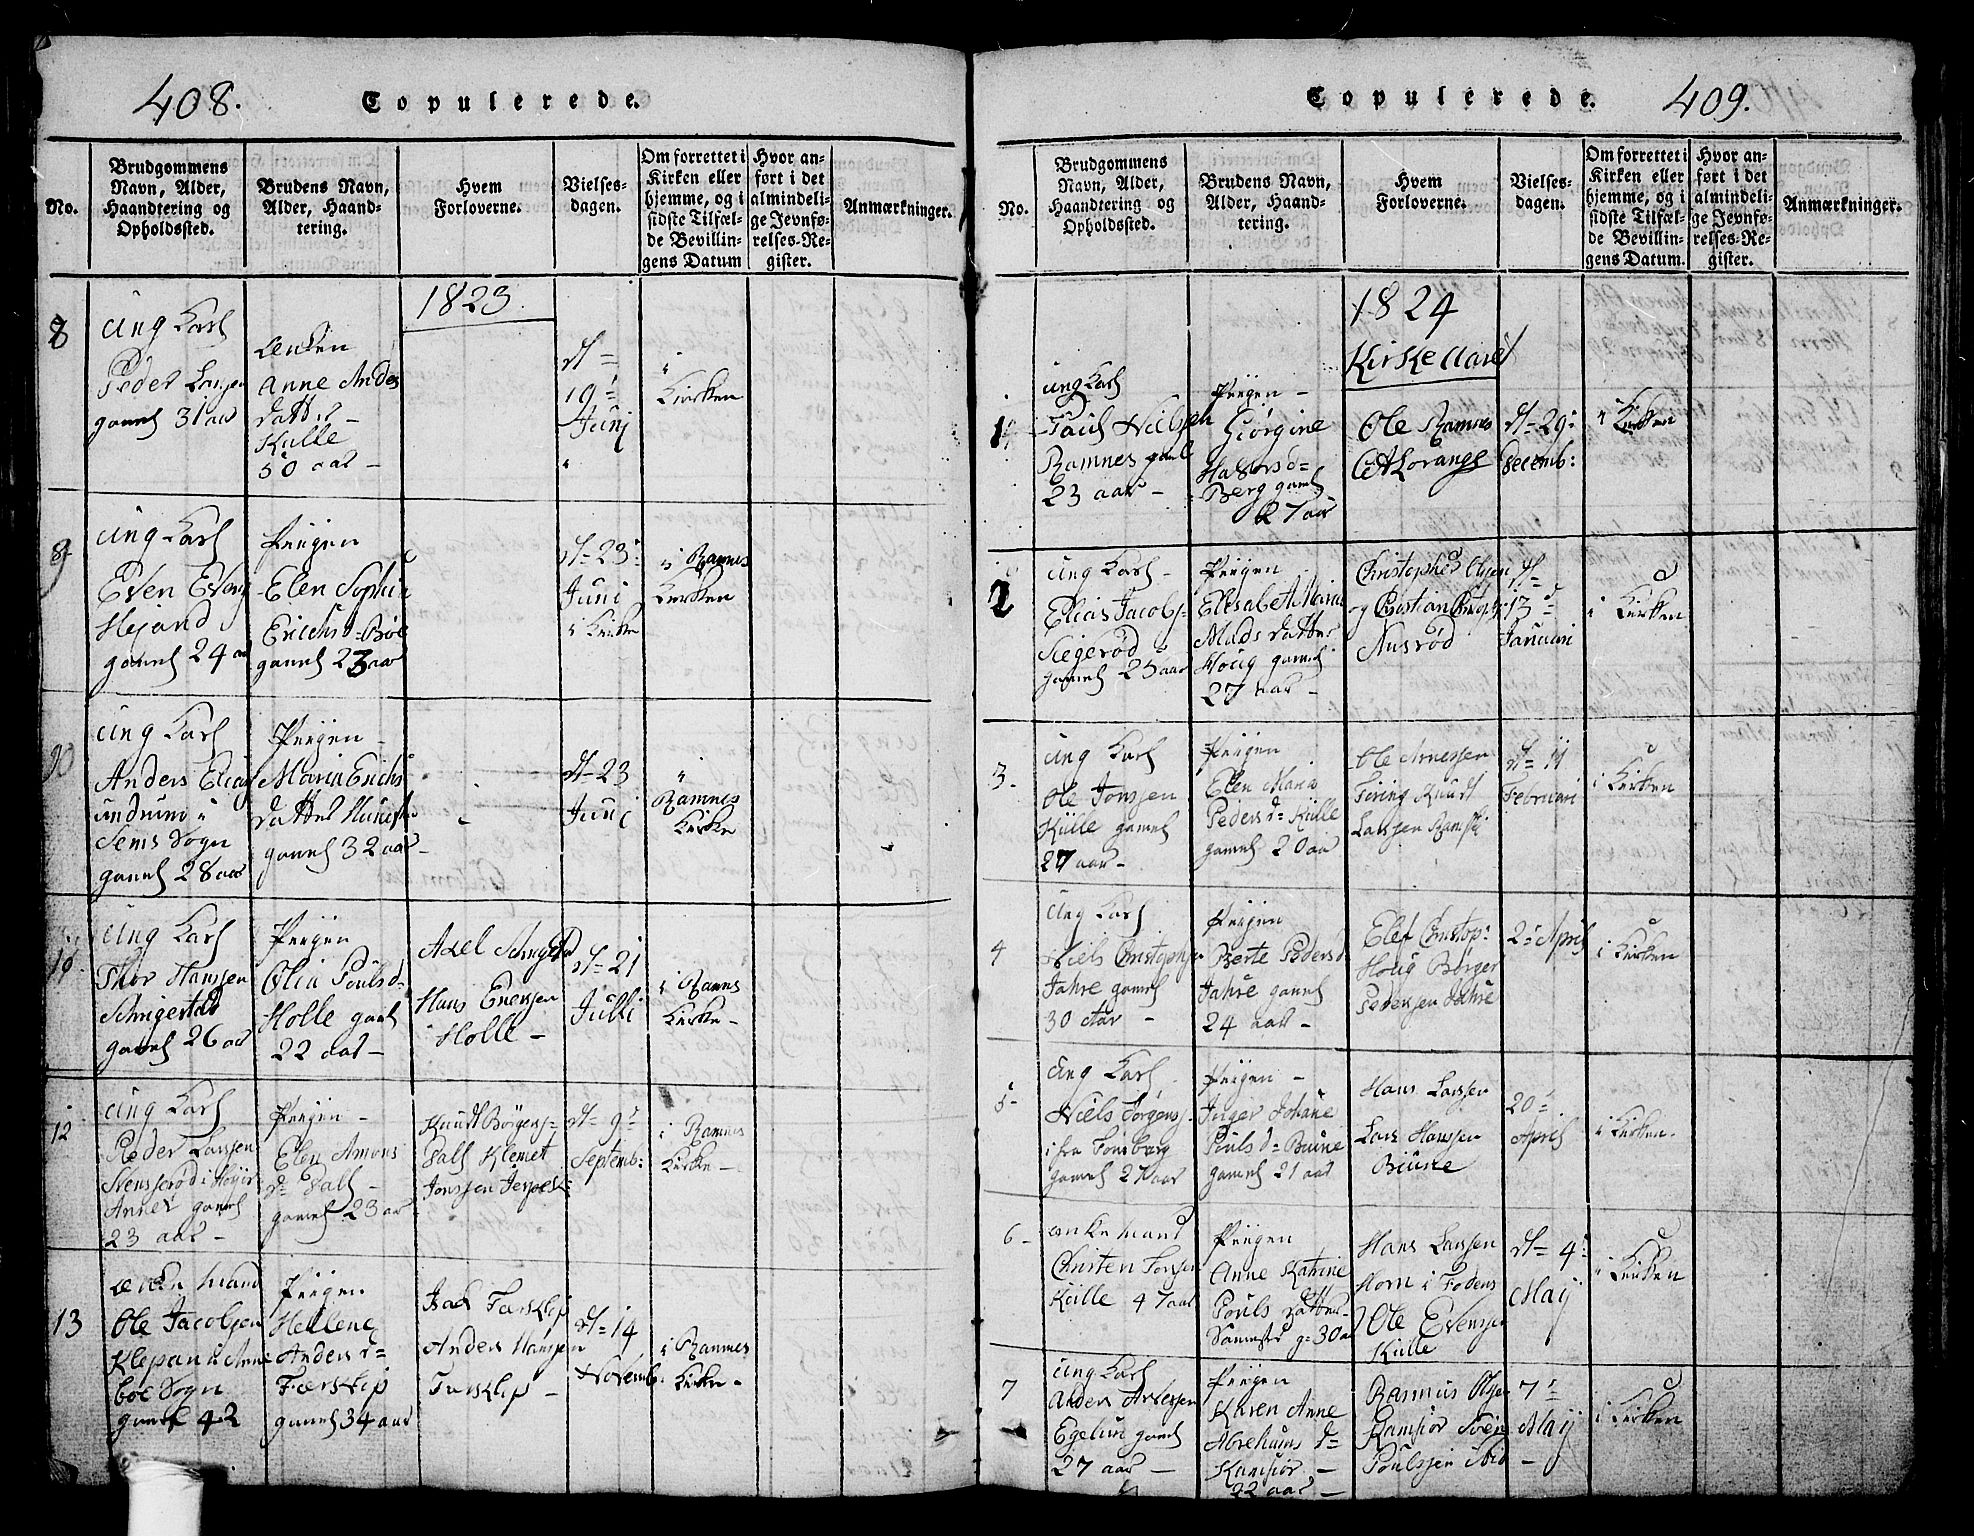 408.
Copulerede.
No.
Brudgommens
Navn, Alder,
Haandtering og
Opholdssted.
Brudens Navn,
Alder, Haand-
tering.
Hvem
Forloverne.
Vielses-
dagen.
Om forrettet i
Kirken eller
hjemme, og i
sidste Tilfæl-
de Bevillin-
gens Datum
Hvor an-
ført i det
almindeli-
ge Jevnfø-
relses-Re-
gister.
Anmærkninger.
1823.
8
Ung Karl
Peder
gamel 31 aar
Enken
Anne Anders
datter
Kulle
50 aar -
d=
19
Junj
i
Kirken
9
Ung Karl
Even Evens
Hejand
gamel 24 aar
Peigen
Elen Sophie
Erichsd= Böe
gamel 23 aar
d= 23
Juni
i Kirke
i Ramnes
Kirken
10
Ung Karl
Anders Elias
undrum i
Sems Sogn
gamel 28 aar
Peigen -
Maria Erichs
datter
gamel 32 aar -
d= 23
Junj
i
Ramnes
Kirke
11
Ung Karl
Thor Hanssen
gamel 26 aar
Peigen
Olia Poulsd=
Holle gaml
22 aar -
Axel
Hans Enersen
Holle -
d= 21
Julli
i Ramnes
Kirke -
12
Ung Karl
Peder Larssen
gamel
23 aar -
Peigen -
Elen Amons
d= Dahl -
gamel 23 aar
Knudt Börgens=
Dahl Klemet
Jonssen
d= 9
Septemb:
i Ramnes
Kirke -
13
Enke Mand
Ole Jacobsen
Klepan i Arne
böe Sogn
gamel 42
Peigen
Hellene
Anders d=
Færsklip
gamel 34 aar
Isac Farsklip
Anders Hanssen
Farsklip -
d= 14
Novemb:
i Ramnes
Kirke -
Copulerede.
409.
No.
Brudgommens
Navn, Alder,
Haandtering og
Opholdssted.
Brudens Navn,
Alder, Haand-
tering.
Hvem
Forloverne.
Vielses-
dagen.
Om forrettet i
Kirken eller
hjemme, og i
sidste Tilfæl-
de Bevillin-
gens Datum.
Hvor an-
ført i det
almindeli-
ge Jevnfø-
relses-Re-
gister.
Anmærkninger.
1824
Kirke Aaret
1
ung Karl
Paul Nielsen
Ramnes gaml
23 aar -
Peigen -
Giörgine
Halvorsd=
Berg gaml
27 aar
Ole Ramnes
C A Lorange
d= 29
Decemb:
i Kirken
2
Ung Karl -
Elias Jacobs=
Siegeröd
gamel 25 aar
Peigen
Elisabeth Maria
Mads datter
Houg gamel
27 aar -
Christopher Olsen
og Christian
Ausröd
d=
13
Januari
i Kirken
3
Ung Karl
Ole Jonssen
Külle gamel
27 aar -
Peigen
Elen Maria
Pedersd= Külle
gamel 20 aar
Ole Arnessen
Firing Knudt
Larssen
d= 11
Februari
i Kirken
4
Ung Karl
Niels Christophersen
Jahre gamel
30 Aar -
Peigen
Berte Pedersd
Jahre gamel
24 aar -
Elef Christop:
Houg Börger
Pederssen Jahre
2 April
i Kirken
5
Ung Karl
Niels Jörgens=
ifra Tonsberg
gamel 27 aar
Peigen -
Inger Johane
Poulsd= Buüne
gamel 21 aar
Hans Larssen
Lars Hanssen
Buüne
20
April
i Kirken
6
Enke Mand
Christen
Külle 47 aar
Peigen
Anne Katrine
Pouls datter
g= 30 a
Hans Larssen
Horn i Fodens
Ole Evenssen
Külle
d= 4
Maij
i Kirken
7
Ung Karl
Anders
Egelun gamel
27 aar -
Peigen
Karen Anne
Abrehams d=
Kamfiör -
22 aar -
Rasmus Olsen
Kamfiör Sören
Poulssen
7
Maij
-
i Kirken